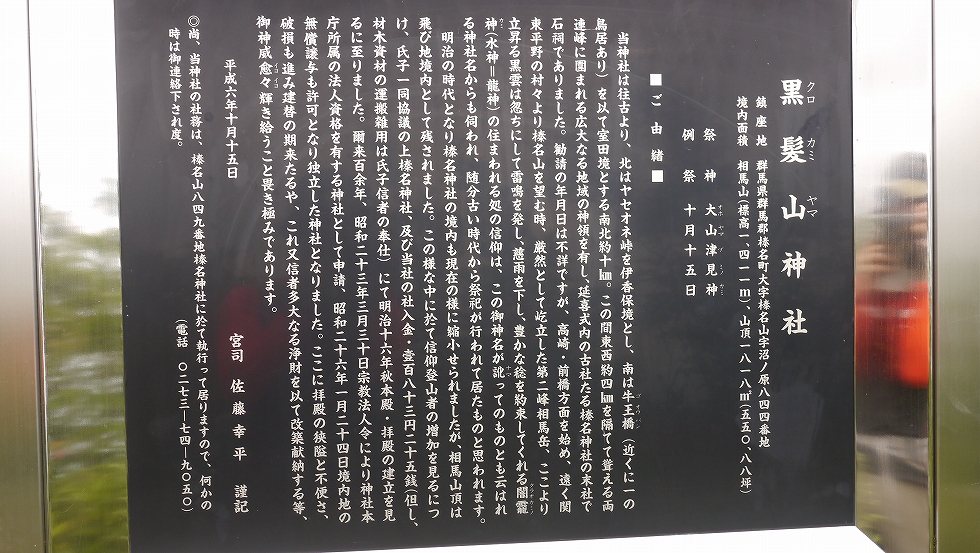 黒髪山神社
クロ カミ ヤマ
鎮座地 群馬県群馬郡榛名町大字榛名山字沼ノ原八四四番地
境内面積 相馬山(標高一、四一一m)、山頂一八一八㎡(五五〇、八八坪)
祭神 大山津見神
オホ ヤマ ツ ミノ カミ
例祭 十月十五日
■ご由緒■
当神社は往古より、北はヤセオネ峠を伊香保境とし、南は牛王橋(近くに一の
ゴオウバシ
鳥居あり)を以て室田境とする南北約十㎞。この間東西約四㎞を隔てて聳える両
連峰に囲まれる広大なる地域の神領を有し、延喜式内の古社たる榛名神社の末社で
石祠でありました。勧請の年月日は不詳ですが、高崎・前橋方面を始め、遠く関
東平野の村々より榛名山を望む時、厳然として屹立した第二峰相馬岳、ここより
立昇る黒雲は忽ちにして雷鳴を発し、慈雨を下し、豊かな稔を約束してくれる闇龗
神(水神=龍神)の住まわれる処の信仰は、この御神名が訛ってのものとも云はれ
る神社名からも伺われ、随分古い時代から祭祀が行われて居たものと思われます。
明治の時代となり榛名神社の境内も現在の様に縮小せられましたが、相馬山頂は
飛び地境内として残されました。この様な中に於て信仰登山者の増加を見るにつ
け、氏子一同協議の上榛名神社、及び当社の社入金・壹百八十三円二十五銭(但し、
材木資材の運搬雑用は氏子信者の奉仕)にて明治十六年秋本殿・拝殿の建立を見
るに至りました。爾来百余年、昭和二十三年三月三十日宗教法人令により神社本
庁所属の法人資格を有する神社として申請、昭和二十六年一月二十四日境内地の
無償譲与も許可となり独立した神社となりました。ここに拝殿の狭隘と不便さ、
破損も進み建替の期来たるや、これ又信者多大なる浄財を以て改築献納する等、
御神威愈々輝き給うこと畏き極みであります。
イヨイヨ
平成六年十月十五日
宮司 佐藤幸平 謹記
◎尚、当神社の社務は、榛名山八四九番地榛名神社に於て執行って居りますので、何かの
時は御連絡下され度。
(電話 〇二七三-七四-九〇五〇)